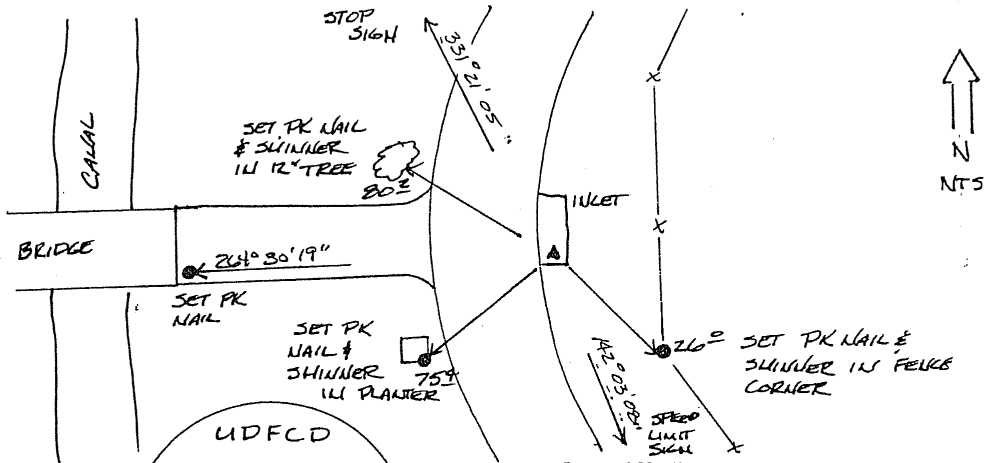 STOP
SIGN
331° 21' 05"
CANAL
SET PK NAIL
& SHINNER
IN 12" TREE
80²
N
NTS
INLET
BRIDGE
264° 30' 19"
SET PK
NAIL
SET PK
NAIL &
SHINNER
IN PLANTER
75⁴
26⁰
SET PK NAIL &
SHINNER IN FENCE
CORNER
142° 03' 08"
SPEED
LIMIT
SIGN
UDFCD